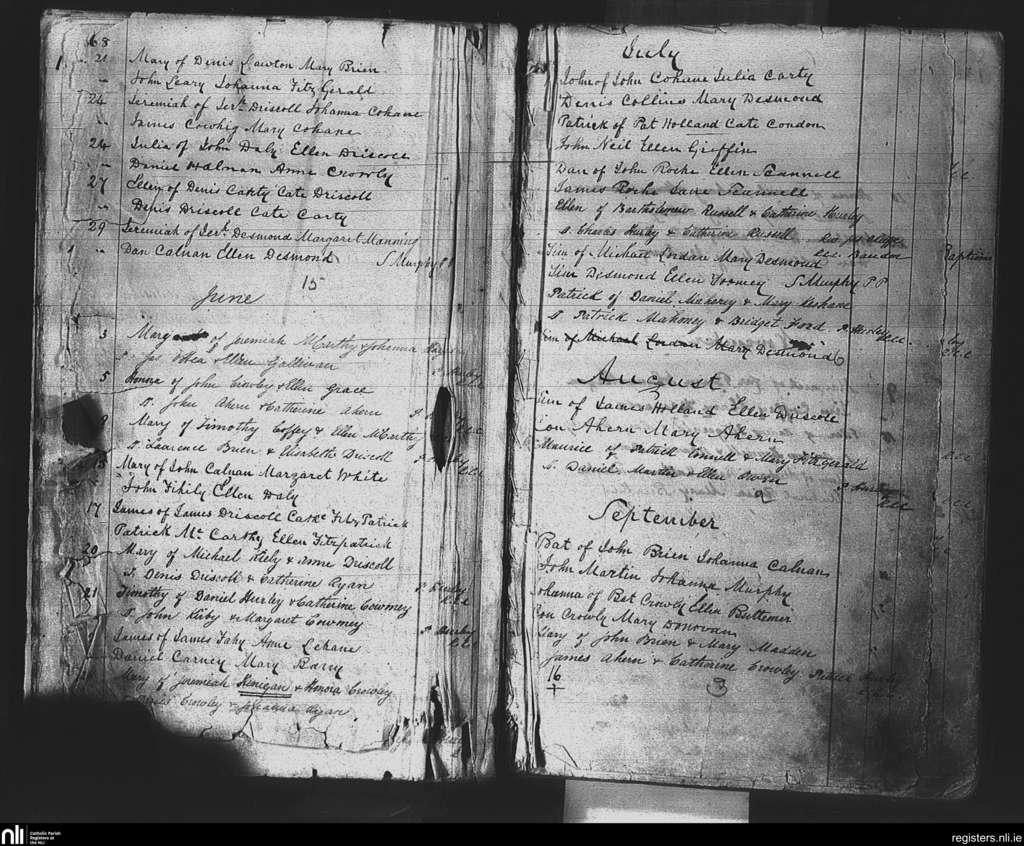 68
21 Mary of Denis Lawton Mary Brien
" John Leary Johanna FitzGerald
24 Jeremiah of Jerh Driscoll Johanna Cohane
" James Cowhig Mary Cohane
24 Julia of John Daly Ellen Driscoll
" Daniel Holman Anne Crowly
27 Ellen of Denis Carty Cate Driscoll
" Denis Driscoll Cate Carty
29 Jeremiah of Jerh Desmond Margaret Manning
" Dan Calnan Ellen Desmond J Murphy PP
15
June
3 of Jeremiah McCarthy & Johanna
Jas Shea & Ellen Gallivan
5 Honora of John Crowly & Ellen Grace
S. John Ahern & Catherine Ahern
Mary of Timothy Coffey & Ellen McCarthy
S. Laurence Brien & Elisbette Driscoll
15 Mary of John Calnan Margaret White
John Fihily Ellen Daly
17 James of James Driscoll Cathe FitzPatrick
Patrick Mc Carthy Ellen Fitzpatrick
20 Mary of Michael Kiely & Anne Driscoll
S. Denis Driscoll & Catherine Ryan
21 Timothy of Daniel Hurley & Catherine Cowmey P Hurley
S. John Kirby & Margaret Cowmey CC
James of James Fahy Anne Lehane P Hurley
Daniel Carney Mary Barry CC
Mary of Jeremiah Henigan & Honora Crowley
Crowley & Johanna Ryan
July
John of John Cohane Julia Carty
Denis Collins Mary Desmond
Patrick of Pat Holland Cate Condon
John Neil Ellen Griffin
Dan of John Roche Ellen Scannell
James Roche Jane Scannell
Ellen of Bartholomew Russell & Catherine Hurly
S. Charles Hurly & Catherine Russell
Tim of Michael Lordan Mary Desmond
Tim Desmond Ellen Toomey J Murphy PP
Patrick of Daniel Mahony & Mary Leshane
S. Patrick Mahoney & Bridget Foad
Tim of Michael Lordan Mary Desmond
August
Tim of James Holland Ellen Driscoll
Con Ahern Mary Ahern
Maurice of Patrick Connell & Mary Fitzgerald
S. Daniel Martin & Ellen Owen
September
Bat of John Brien Johanna Calnan
John Martin Johanna Murphy
Johanna of Bat Crowly Ellen Buttemer
Con Crowly Mary Donovan
Mary of John Brien & Mary Madden
James Ahern & Catharine Crowly
16
3
nli
Catholic Parish
Registers at
the NLI
registers.nli.ie